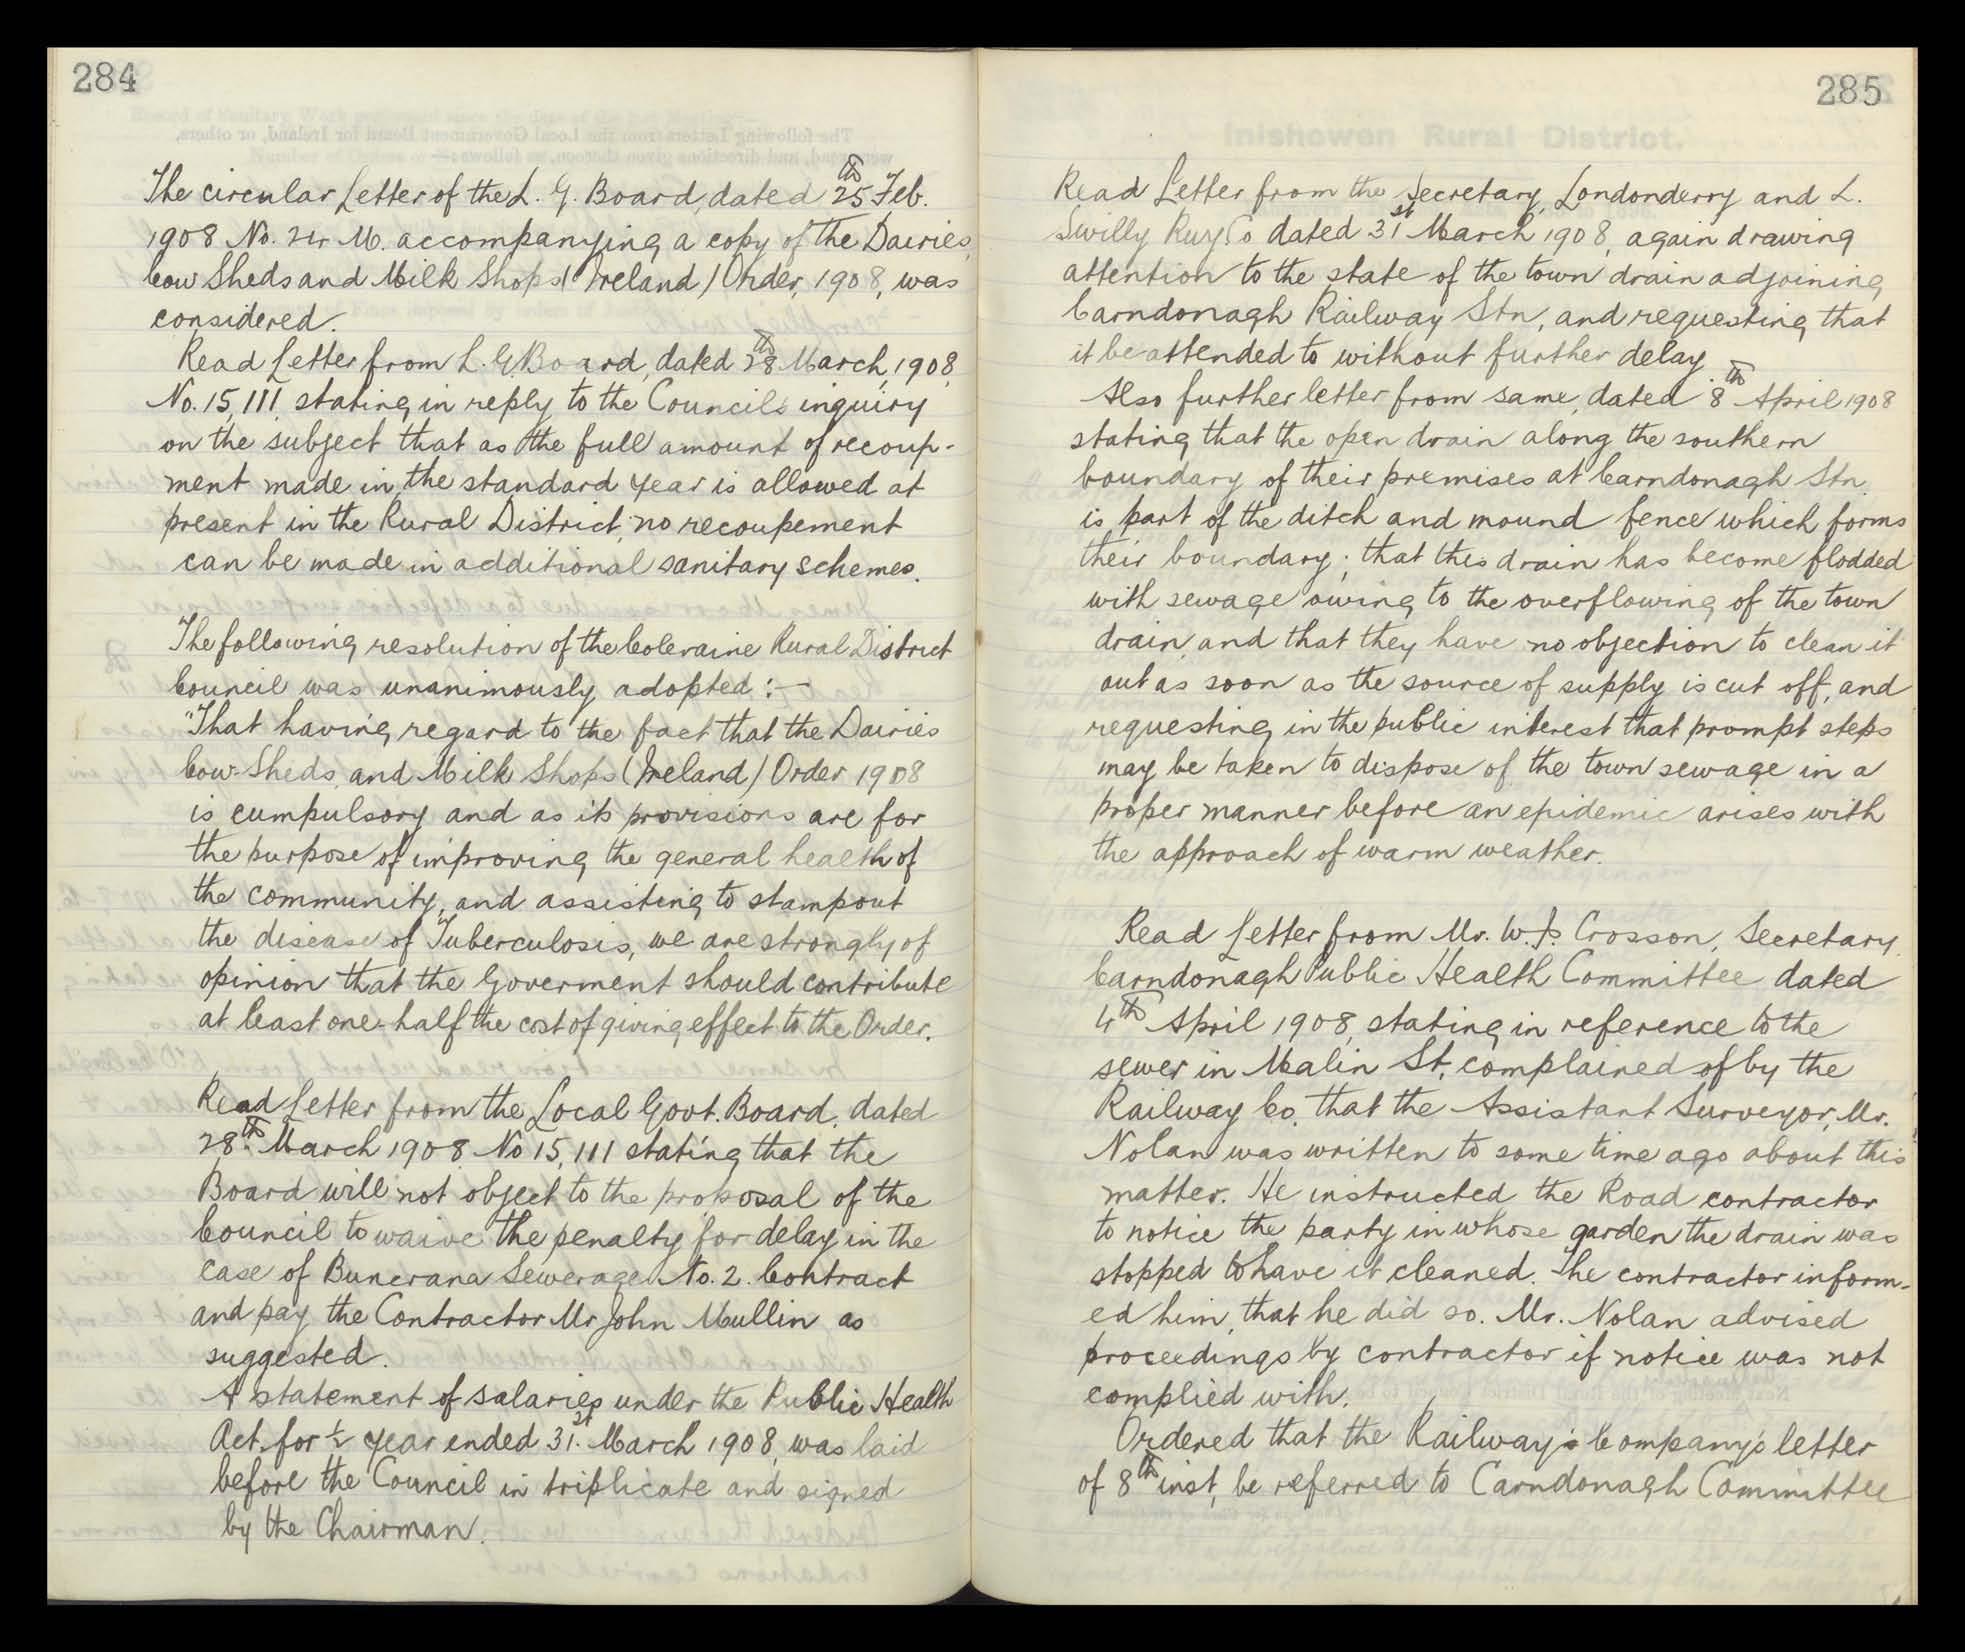 284
The circular Letter of the L. G. Board, dated 25th Feb.
1908 No. 24 M. accompanying a copy of the Dairies,
Cow Sheds and Milk Shops (Ireland) Order, 1908, was
considered.
Read Letter from L. G. Board, dated 28th March, 1908,
No. 15,111, stating in reply to the Councils inquiry
on the subject that as the full amount of recoup-
ment made in the standard year is allowed at
present in the Rural District, no recoupement
can be made in additional sanitary schemes.
The following resolution of the Coleraine Rural District
Council was unanimously adopted :—
"That having regard to the fact that the Dairies
Cow-Sheds, and Milk Shops (Ireland) Order 1908
is cumpulsory and as its provisions are for
the purpose of improving the general health of
the community, and assisting to stampout
the disease of Tuberculosis, we are strongly of
opinion that the Goverment should contribute
at least one-half the cost of giving effect to the Order.
Read Letter from the Local Govt. Board, dated
28th March 1908 No 15,111 stating that the
Board will not object to the proposal of the
Council to waive the penalty for delay in the
case of Buncrana Sewerage No. 2. Contract
and pay the Contractor Mr John Mullin as
suggested.
A statement of salaries under the Public Health
Act, for ½ year ended 31st March 1908, was laid
before the Council in triplicate and signed
by the Chairman.
285
Inishowen Rural District.
Read Letter from the Secretary, Londonderry and L.
Swilly Ruy Co dated 31st March 1908, again drawing
attention to the state of the town drain adjoining
Carndonagh Railway Stn, and requesting that
it be attended to without further delay.
Also further letter from same, dated 8th April 1908
stating that the open drain along the southern
boundary of their premises at Carndonagh Stn.
is part of the ditch and mound fence which forms
their boundary; that this drain has become flodded
with sewage owing to the overflowing of the town
drain, and that they have no objection to clean it
out as soon as the source of supply is cut off, and
requesting in the public interest that prompt steps
may be taken to dispose of the town sewage in a
proper manner before an epidemic arises with
the approach of warm weather.
Read Letter from Mr. W. Crosson, Secretary,
Carndonagh Public Health Committee dated
4th April 1908, stating in reference to the
sewer in Malin St, complained of by the
Railway Co. that the Assistant Surveyor, Mr.
Nolan was written to some time ago about this
matter. He instructed the Road contractor
to notice the party in whose garden the drain was
stopped to have it cleaned. The contractor inform-
ed him, that he did so. Mr. Nolan advised
proceedings by contractor if notice was not
complied with.
Ordered that the Railway's Company's letter
of 8th inst, be referred to Carndonagh Committee